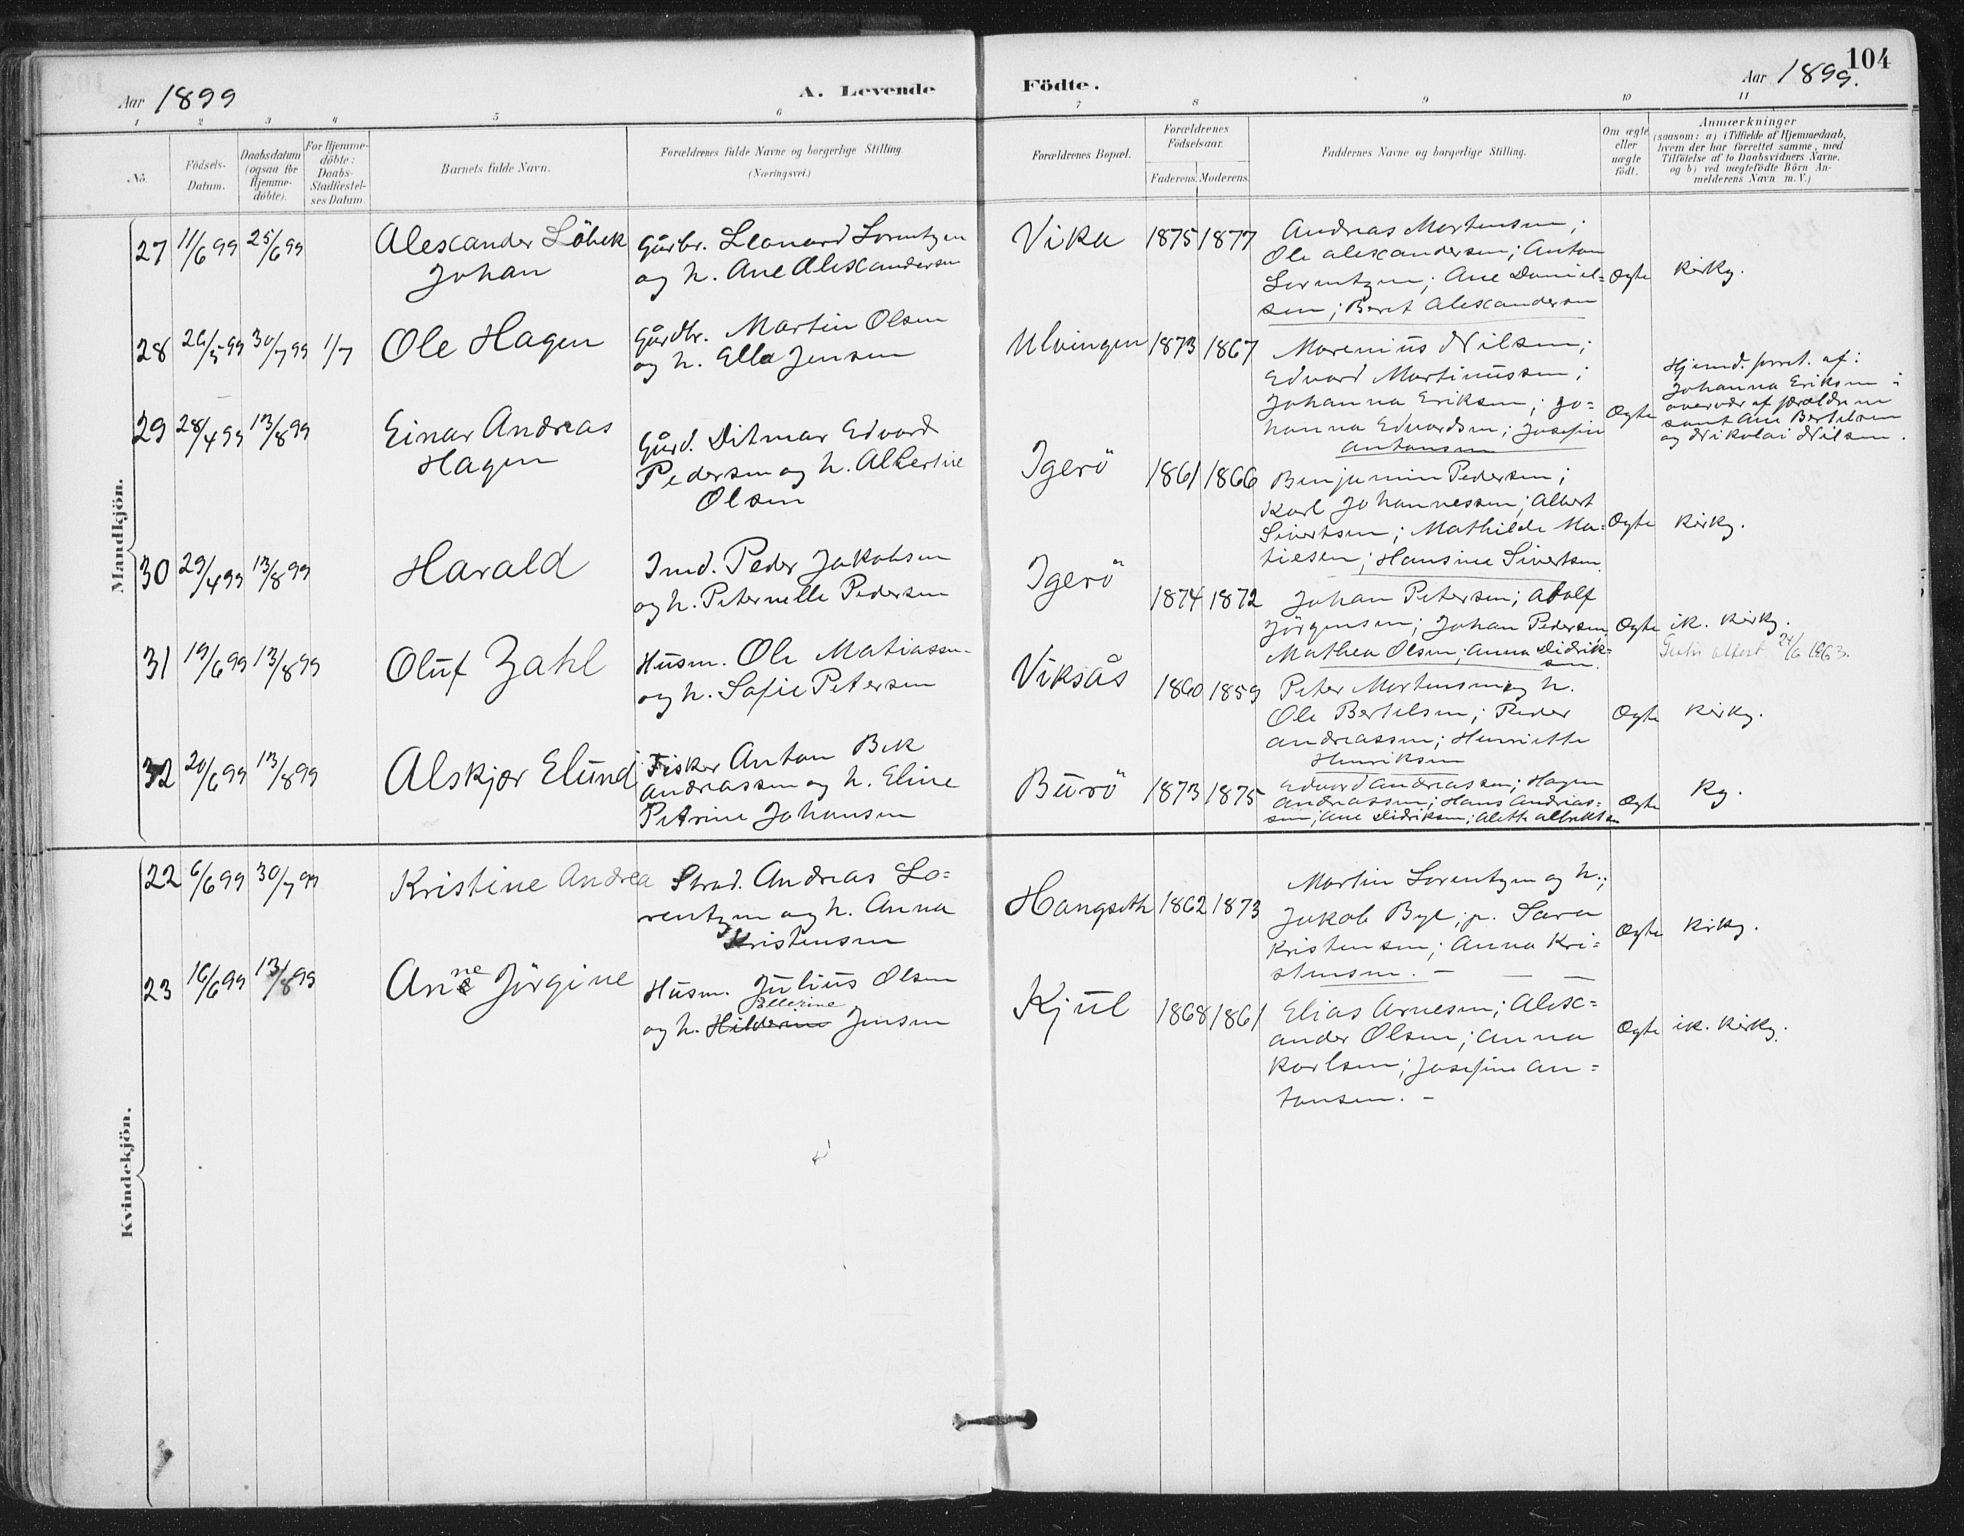 104
Aar 1899
A. Levende
Födte.
Aar 1899.
1 2 3 4 5 6 7 8 9 10 11
No.
Födsels-
Datum.
Daabsdatum
(ogsaa for
Hjemme-
döbte).
For Hjemme-
döbte:
Daabs-
Stadfæstel-
ses Datum.
Barnets fulde Navn.
Forældrenes fulde Navne og borgerlige Stilling.
(Næringsvei.)
Forældrenes Bopæl.
Forældrenes
Födselsaar.
Faderens. Moderens.
Faddernes Navne og borgerlige Stilling.
Om ægte
eller
uægte
födt.
Anmærkninger
(saasom: a) i Tilfælde af Hjemmedaab,
hvem der har forrettet samme, med
Tilföielse af to Daabsvidners Navne.
og b) ved uægtefödte Börn An-
melderens Navn m. V.)
Mandkjön.
27 11/6 99 25/6 99
Alexander Löbek
Johan
Gårbr. Leonard Lorentzen
og h. Ane Alexandersen
Vika 1875 1877
Andreas Mortensen;
Ole Alexandersen; Anton
Lorentzen; Ane Daniel=
sen; Berit Alexandersen
Ægte kirkg.
28 26/5 99 30/7 99 1/7
Ole Hagen
Gårdbr. Martin Olsen
og h. Ella Jensen
Ulvingen 1873 1867
Marenius Nilsen;
Edvard Martinussen;
Johanna Eriksen; Jo-
hanna Edvardsen; Josefin
Antonsen
Ægte
Hjemd. forret. af:
Johanna Eriksen i
overvær af forældrene
samt Ane Bertelsen
og Nikolai Nilsen.
29 28/4 99 13/8 99
Einar Andreas
Hagen
Gård. Ditmar Edvard
Pedersen og h. Albertine
Olsen
Igerö 1861 1866
Benjamin Pedersen;
Karl Johannessen; Albert
Sivertsen; Mathilde Ma=
tiesen; Hansine Sivertsen.
Ægte kirkg.
30 29/4 99 13/8 99
Harald
Ind. Peder Jakobsen
og h. Peternelle Pedersen
Igerö 1874 1872
Johan Petersen; Adolf
Jörgensen; Johan Pedersen
Mathea Olsen; Anna Didrik-
sen.
Ægte ik. kirkg.
attest 24/6 1963.
31 19/6 99 13/8 99
Oluf Zahl
Husm. Ole Matiassen
og h. Sofie Petersen
Viksås 1860 1859
Peter Mortensen og h.
Ole Bertelsen; Peder
Andreassen; Henriette
Henriksen
Ægte kirkg.
32 20/6 99 13/8 99
Alskjær Elund
Fisker Anton Bek
Andreassen og h. Eline
Petrine Johansen
Burö 1873 1875
Edvard Andreassen; Hagen
Andreassen; Hans Andreas=
sen; Ane Didriksen; Aleth Albriktsen
Ægte kg.
Kvindekjön.
22 6/6 99 30/7 99
Kristine Andrea
Strad. Andreas Lo=
rentzen og h. Anna
Kristensen
Hangseth 1862 1873
Martin Lorentzen og h.;
Jakob Bye; p. Sara
Kristensen; Anna Kri=
stensen. —
Ægte kirkg.
23 16/6 99 13/8 99
Anne Jörgine
Husm. Julius Olsen
Ellerine
og h. Hilderine Jensen
Kjul 1868 1861
Elias Arnesen; Alex=
ander Olsen; Anna
Karlsen; Josefine An=
tonsen. —
Ægte ik. kirkg.